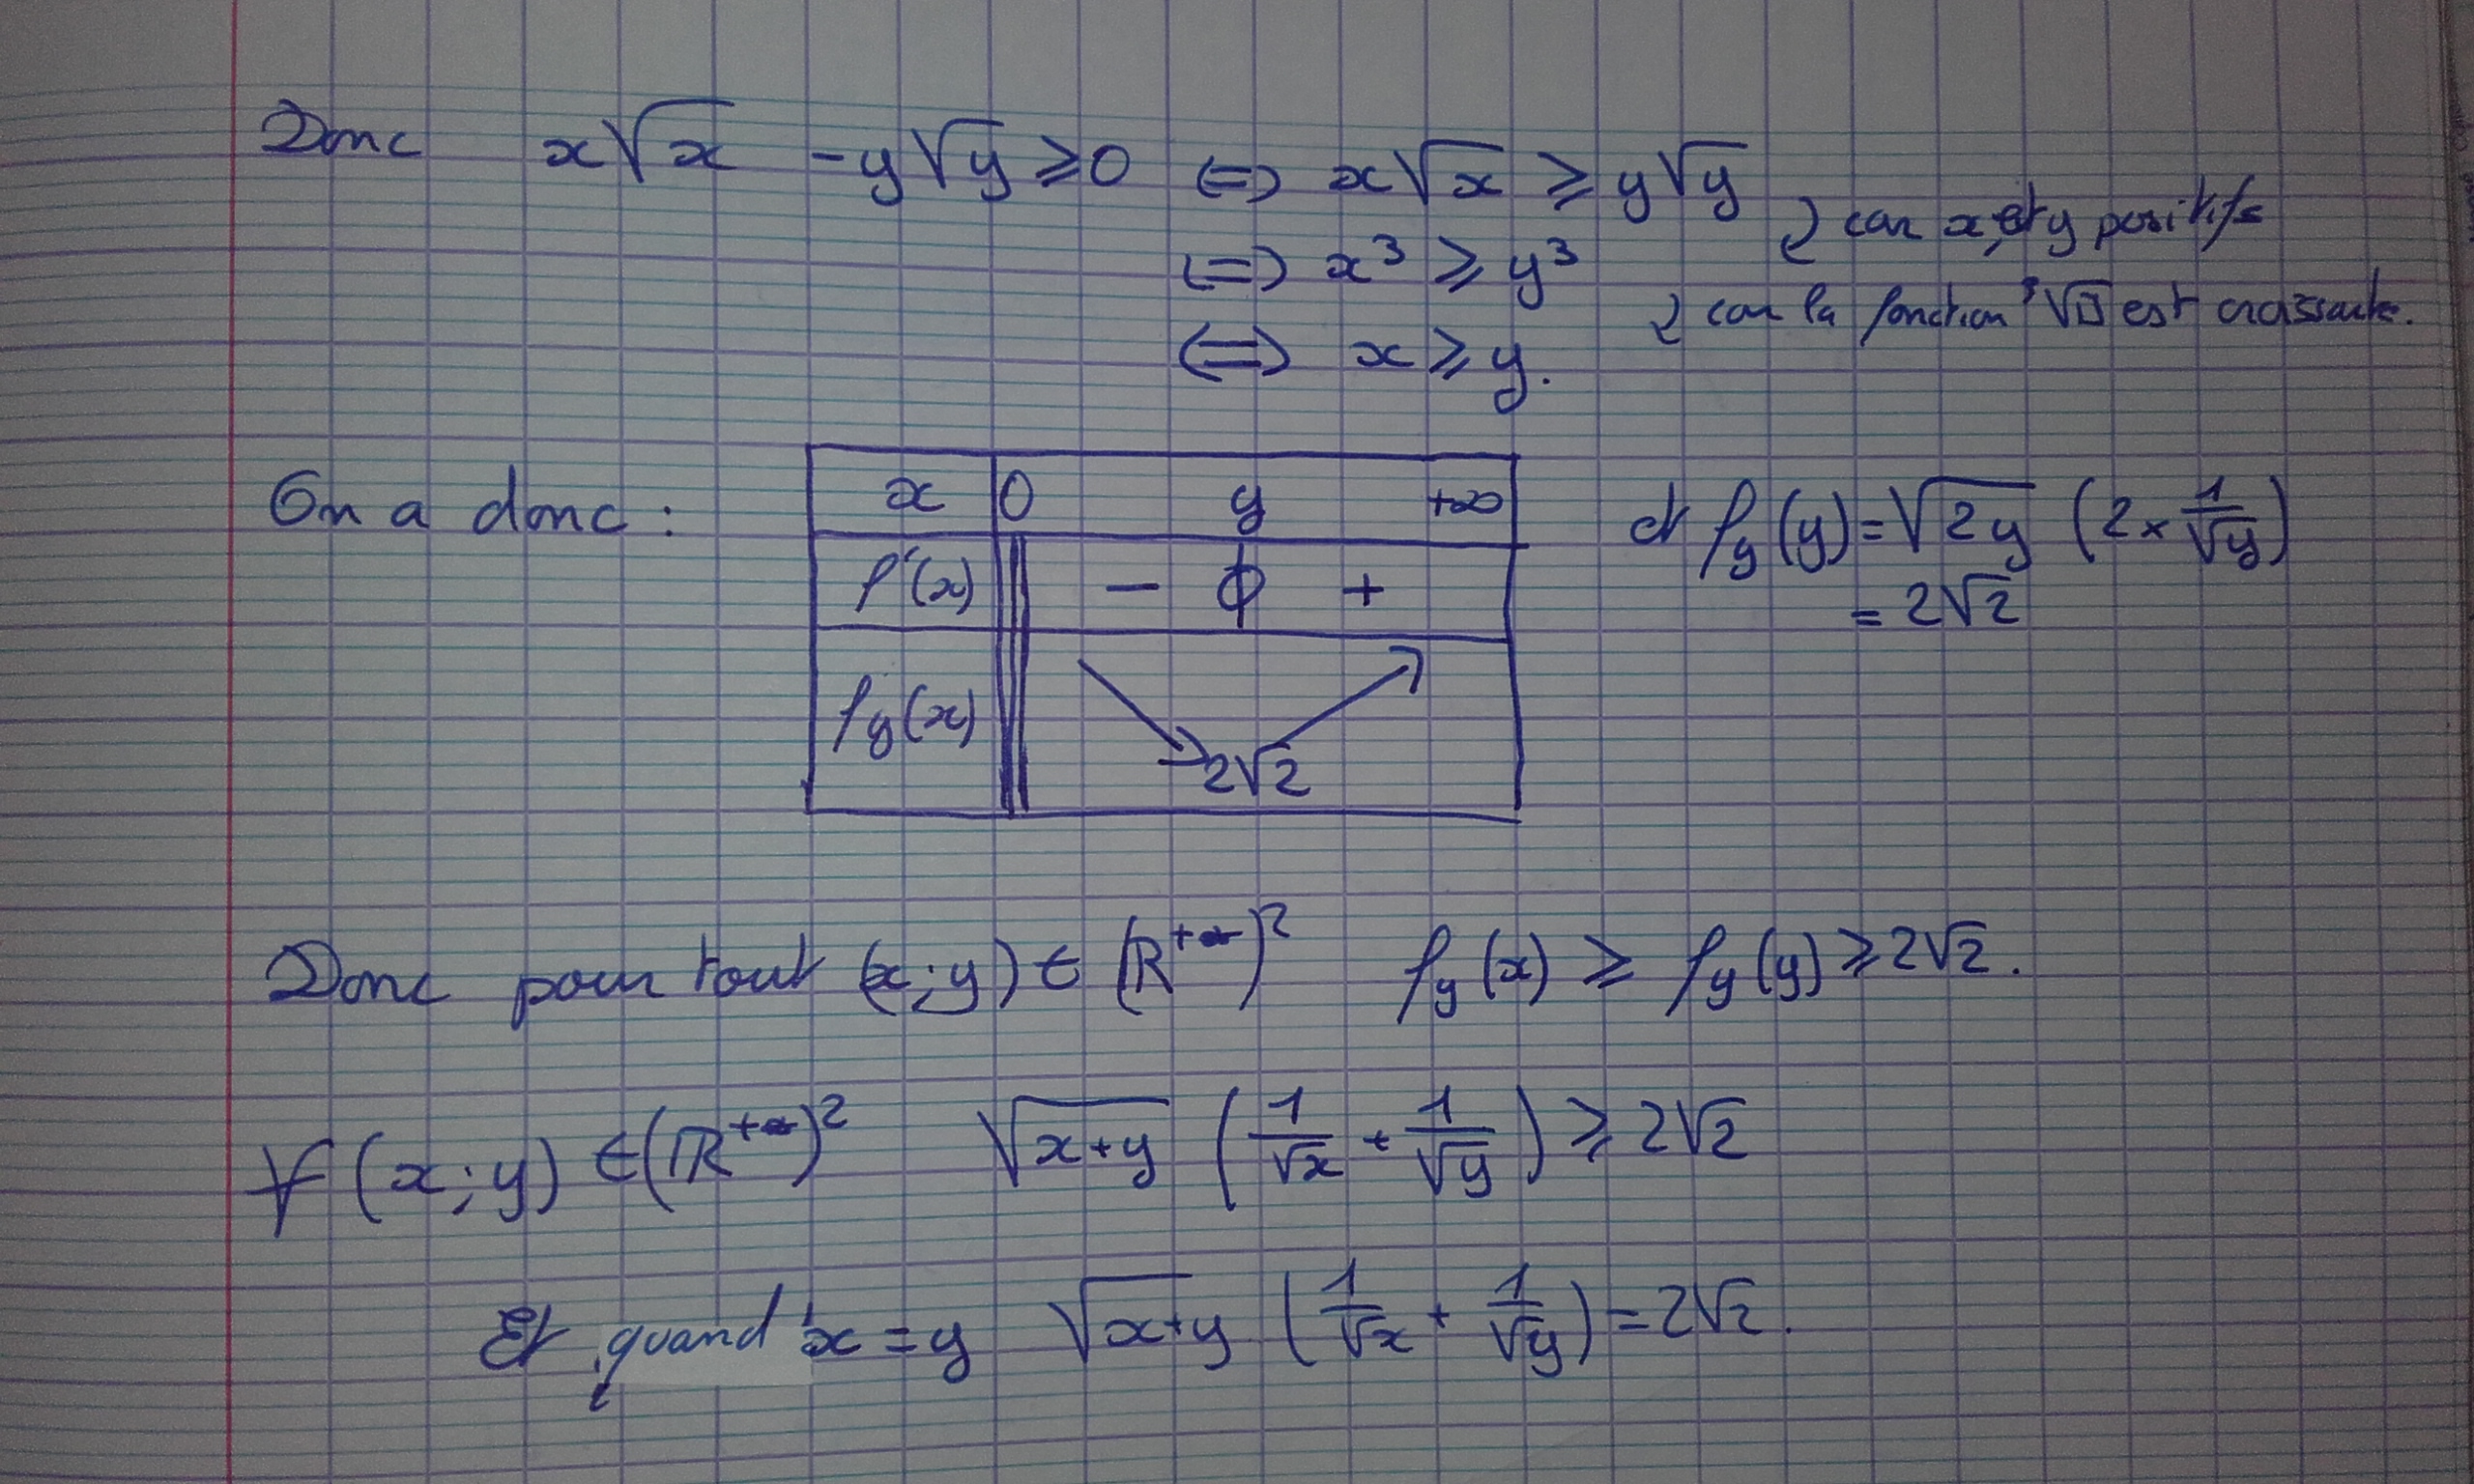 Donc x√x - y√y ⩾ 0 ⟺ x√x ⩾ y√y
⟺ x³ ⩾ y³ car x et y positifs
⟺ x ⩾ y. car la fonction ³√ est croissante.
On a donc :
x 0 y +∞
f'(x) - 0 +
f_y(x) 2√2
et f_y(y) = √2y (2 × 1/√y)
= 2√2
Donc pour tout (x;y) ∈ (R⁺*)² f_y(x) ⩾ f_y(y) ⩾ 2√2.
∀ (x;y) ∈ (R⁺*)² √x+y (1/√x + 1/√y) ⩾ 2√2
Et quand x = y √x+y (1/√x + 1/√y) = 2√2.